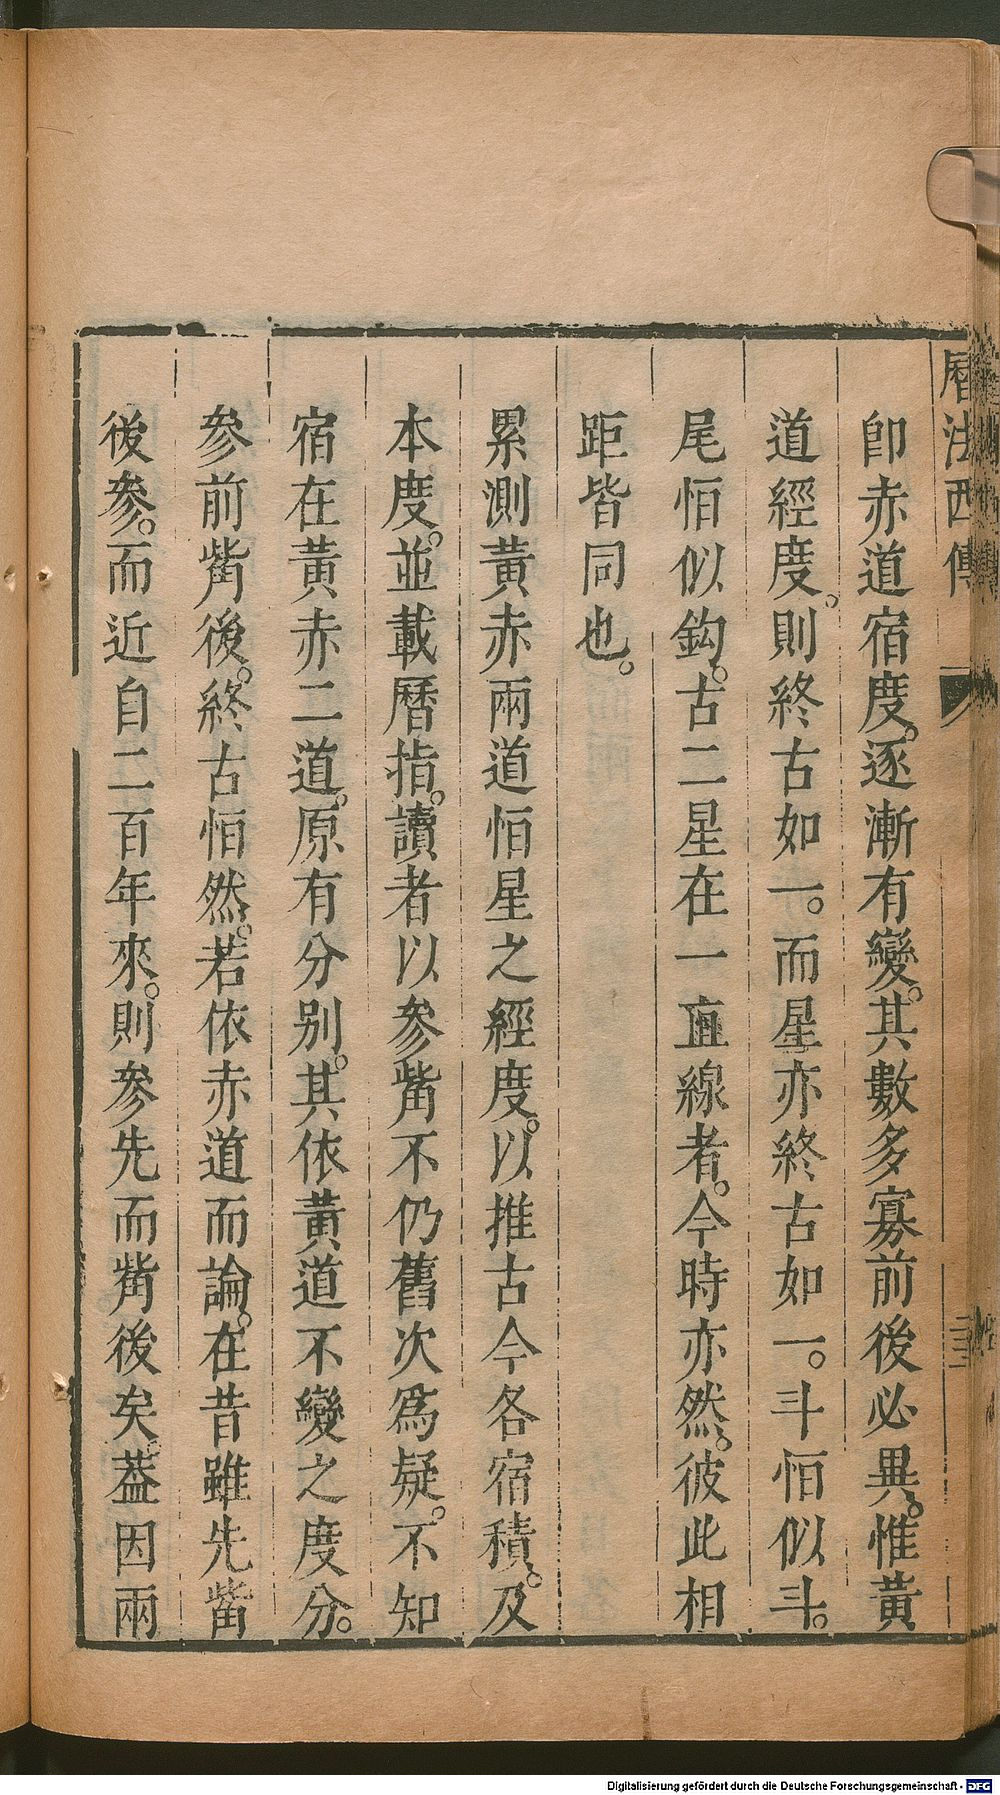 曆法西傳
卽赤道宿度。逐漸有變。其數多寡前後必異。惟黃
道經度。則終古如一。而星亦終古如一。斗恒似斗。
尾恒似鈎。古二星在一直線者。今時亦然。彼此相
距皆同也。
累測黃赤兩道恒星之經度。以推古今各宿積。及
本度。並載曆指。讀者以參觜不仍舊次爲疑。不知
宿在黃赤二道。原有分别。其依黃道不變之度分。
參前觜後。終古恒然。若依赤道而論。在昔雖先觜
後參。而近自二百年來。則參先而觜後矣。葢因兩
Digitalisierung gefördert durch die Deutsche Forschungsgemeinschaft - DFG